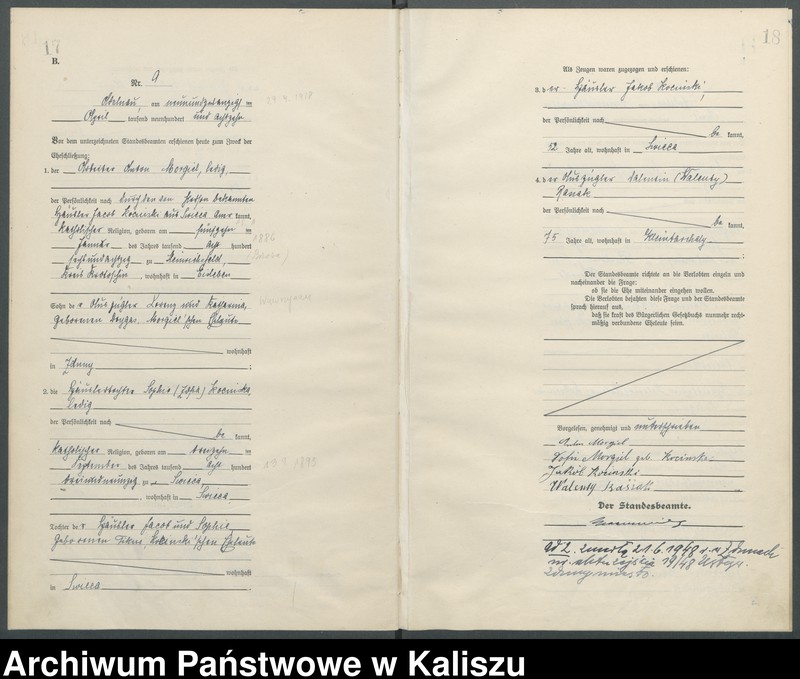 17
B.
Nr. 9
am neunundzwanzigsten
April tausend neunhundert und achtzehn
29. 4. 1918
Vor dem unterzeichneten Standesbeamten erschienen heute zum Zweck der
Eheschließung:
1. der Arbeiter Anton Morgiel, ledig,
der Persönlichkeit nach durch den von Person bekannten
Häusler Jacob Kocinski aus kannt,
katholischer Religion, geboren am fünfzehn
Januar des Jahres tausend acht hundert
sechsundachtzig zu
1886
Kreis Krotoschin, wohnhaft in Eisleben
Sohn der Auszügler Lorenz und Katharina,
geborenen Morgiel'schen Eheleute
wohnhaft
in Zduny ;
2. die Häuslertochter Sophie (Zofia) Kocinska,
ledig
der Persönlichkeit nach
be kannt,
katholischer Religion, geboren am dreizehn
September des Jahres tausend acht hundert
dreiundneunzig zu Swieca
wohnhaft in Swieca
Tochter der Häusler Jacob und Sophie,
geborenen Kocinski'schen Eheleute
wohnhaft
in Swieca
18
Als Zeugen waren zugezogen und erschienen:
3. der Häusler Jakob Kocinski,
der Persönlichkeit nach
be kannt,
52 Jahre alt, wohnhaft in Swieca
4. der Auszügler Valentin (Walenty)
der Persönlichkeit nach
be kannt,
75 Jahre alt, wohnhaft in Kleintarchaly
;
Der Standesbeamte richtete an die Verlobten einzeln und
nacheinander die Frage:
ob sie die Ehe miteinander eingehen wollen.
Die Verlobten bejahten diese Frage und der Standesbeamte
sprach hierauf aus,
daß sie kraft des Bürgerlichen Gesetzbuchs nunmehr recht-
mäßig verbundene Eheleute seien.
Vorgelesen, genehmigt und unterschrieben
Anton Morgiel
Sofie Morgiel geb. Kocinska
Jakób Kocinski
Walenty
Der Standesbeamte.
Ad 2. zmarła 21.6.1948 r. w Zdunach
nr. aktu zejścia 19/48
Archiwum Państwowe w Kaliszu